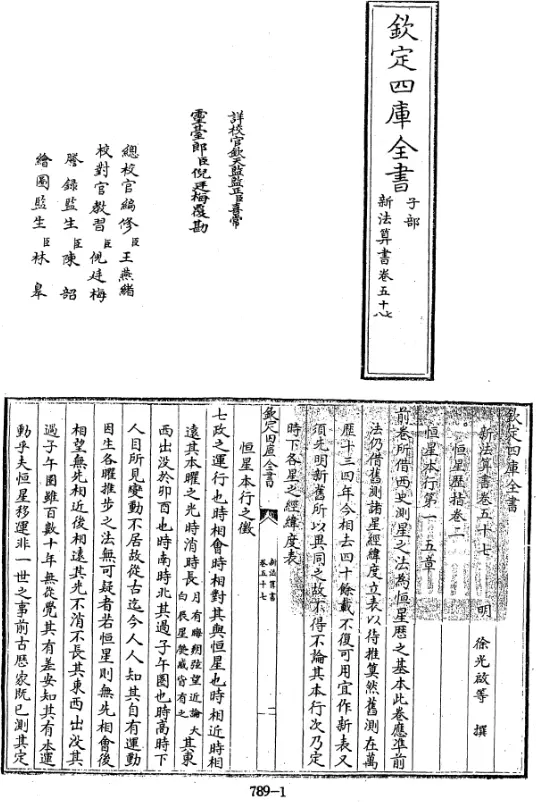 欽定四庫全書
子部
新法算書卷五十七八
詳校官欽天監監正臣喜常
靈臺郎臣倪廷梅覆勘
總校官編修臣王燕緒
校對官教習臣倪廷梅
謄錄監生臣陳韶
繪圖監生臣林皐
欽定四庫全書
新法算書卷五十七
明 徐光啟等 撰
恒星歷指卷二
恒星本行第一 五章
前卷所借西史測星之法為恒星歷之基本此卷應準前
法仍借舊測諸星經緯度立表以待推算然舊測在萬
歷十三四年今相去四十餘載不復可用宜作新表又
須先明新舊所以異同之故不得不論其本行次乃定
時下各星之經緯度表
欽定四庫全書
新法算書
卷五十七
一
恒星本行之徵
七政之運行也時相會時相對其與恒星也時相近時相
遠其本曜之光時消時長月有晦朔弦望近論大白辰星熒惑皆有之其東
西出没於卯酉也時南時北其過子午圏也時高時下
人目所見變動不居故從古迄今人人知其自有運動
因生各曜推步之法無可疑者若恒星則無先相會後
相望無先相近後相遠其光不消不長其東西出没其
過子午圏雖百數十年無從覺其有差安知其有本運
動乎夫恒星移運非一世之事前古歷家既已測其定
789-1